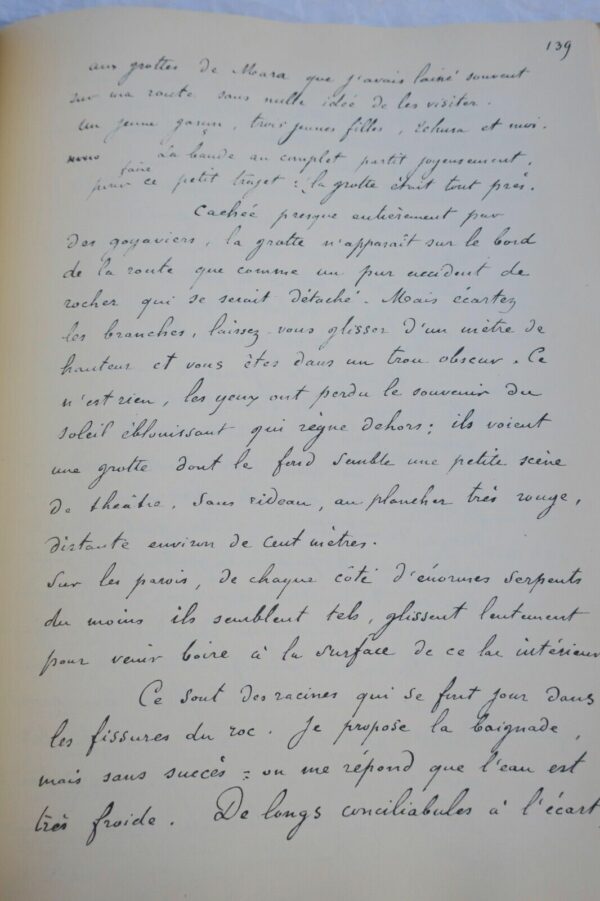 139
aux grottes de Mara que j'avais laissé souvent
sur ma route sans nulle idée de les visiter.
un jeune garçon, trois jeunes filles, Tehura et moi.
La bande au complet partit joyeusement,
faire
pour ce petit trajet : la grotte était tout près.
Cachée presque entièrement par
des goyaviers, la grotte n'apparaît sur le bord
de la route que comme un pur accident de
rocher qui se serait détaché. Mais écartez
les branches, laissez-vous glisser d'un mètre de
hauteur et vous êtes dans un trou obscur. Ce
n'est rien, les yeux ont perdu le souvenir du
soleil éblouissant qui règne dehors ; ils voient
une grotte dont le fond semble une petite scène
de théâtre, sans rideau, au plancher très rouge,
distante environ de cent mètres.
Sur les parois, de chaque côté d'énormes serpents
du moins ils semblent tels, glissent lentement
pour venir boire à la surface de ce lac intérieur
Ce sont des racines qui se font jour dans
les fissures du roc. Je propose la baignade,
mais sans succès : on me répond que l'eau est
très froide. De longs conciliabules à l'écart